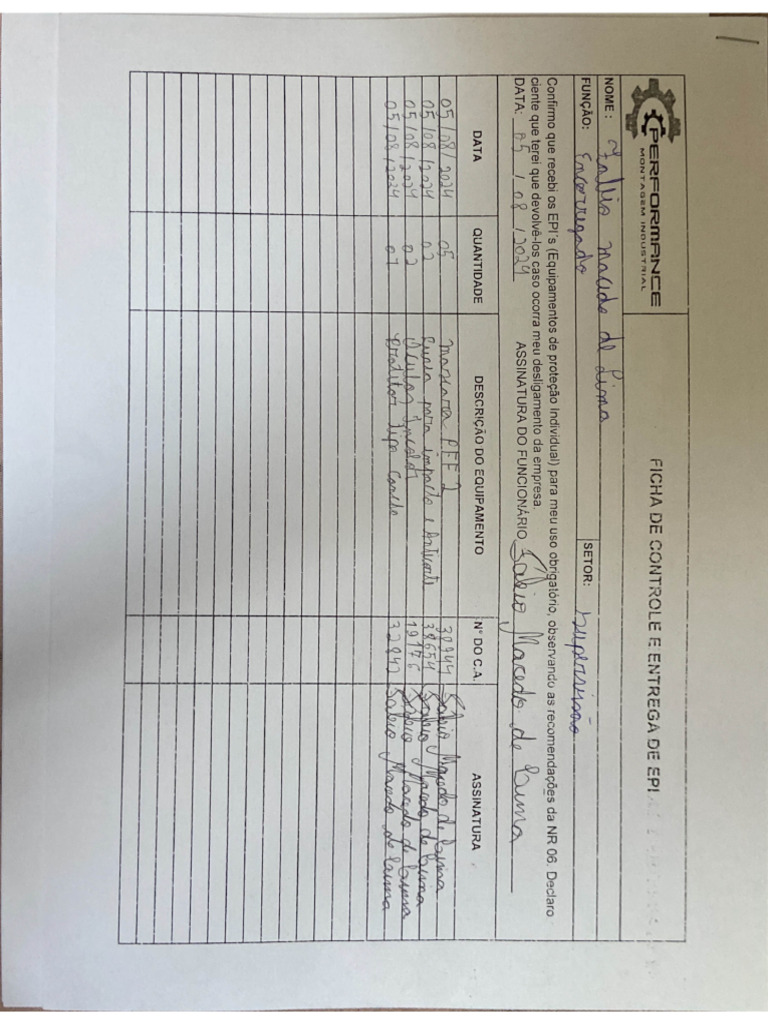 PERFORMANCE
MONTAGEM INDUSTRIAL
FICHA DE CONTROLE E ENTREGA DE EPI
NOME: Macedo de Lima
FUNÇÃO: Encarregado SETOR: Supervisão
Confirmo que recebi os EPI´s (Equipamentos de proteção Individual) para meu uso obrigatório, observando as recomendações da NR 06. Declaro
ciente que terei que devolvê-los caso ocorra meu desligamento da empresa.
DATA: 05 / 08 / 2024 ASSINATURA DO FUNCIONÁRIO Macedo de Lima
DATA QUANTIDADE DESCRIÇÃO DO EQUIPAMENTO N° DO C.A. ASSINATURA
05/08/2024 05 Mascara PFF2 Macedo de Lima
05/08/2024 02 para impacto e Anticorte 38654 Macedo de Lima
05/08/2024 02 Oculos Incolor 19176 Macedo de Lima
05/08/2024 01 tipo Macedo de Lima